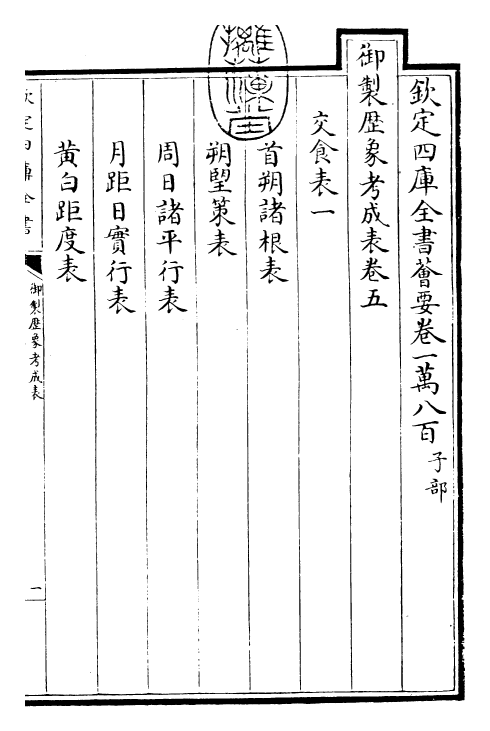 欽定四庫全書薈要卷一萬八百 子部
御製歴象考成表卷五
交食表一
首朔諸根表
朔望策表
周日諸平行表
月距日實行表
黃白距度表
欽定四庫全書
御製歷象考成表
一